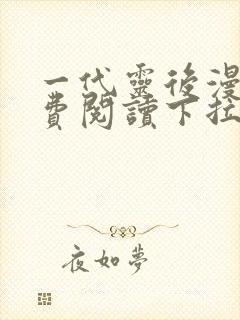 一代靈後漫
費閱讀下拉
夜如夢